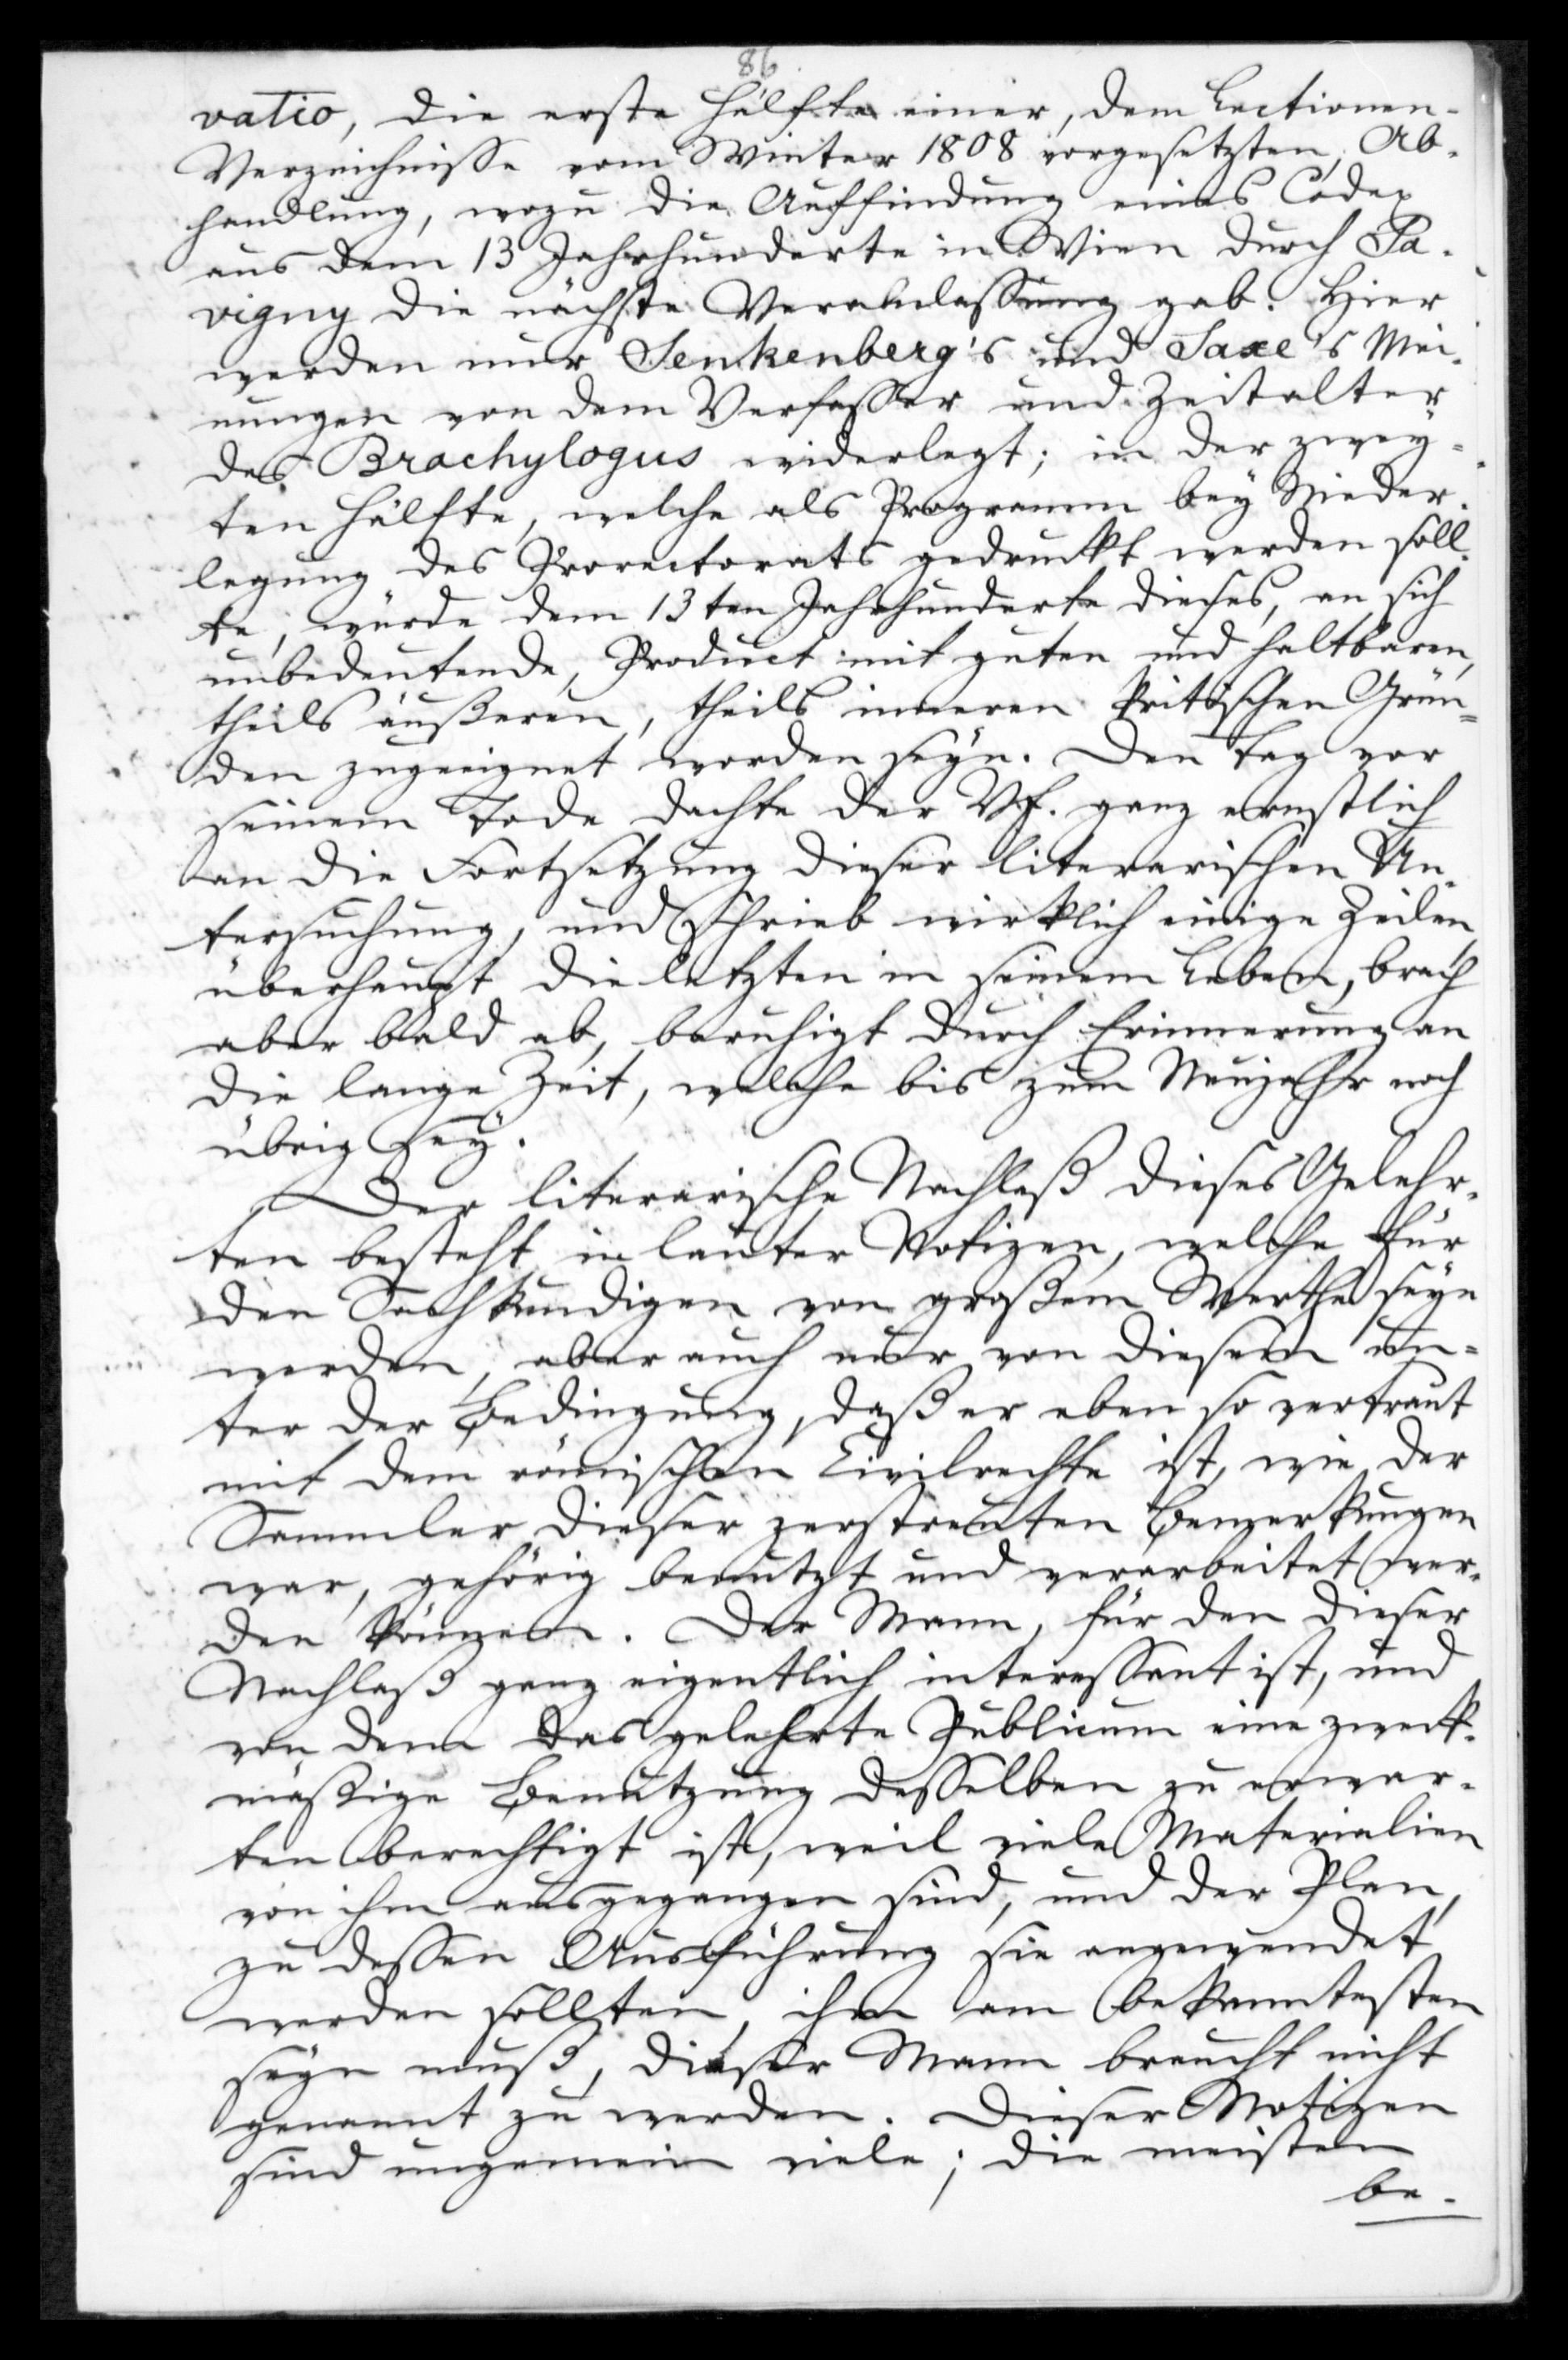 86
vatio, die erste Hälfte einer, dem Lectionen-
Verzeichnisse vom Winter 1808 vorgesetzten, Ab-
handlung, wozu die Auffindung eines Codex
aus dem 13 Jahrhunderte in Wien durch Sa-
vigny die nächste Veranlassung gab. Hier
werden nur Senkenberg's und Saxe's Mei-
nungen von dem Verfasser und Zeitalter
des Brachylogus widerlegt; in der zwey-
ten Hälfte, welche als Programm bey Nieder-
legung des Prorectorats gedruckt werden soll-
te, würde dem 13ten Jahrhunderte dieses, an sich
unbedeutende, Product mit guten und haltbaren,
theils äußeren, theils inneren kritischen Grün-
den zugeeignet worden seyn. Den Tag vor
seinem Tode dachte der Vf. ganz ernstlich
an die Fortsetzung dieser literarischen Un-
tersuchung, und schrieb wirklich einige Zeilen,
überhaupt die letzten in seinem Leben, brach
aber bald ab, beruhigt durch Erinnerung an
die lange Zeit, welche bis zum Neujahr noch
übrig sey.
Der literarische Nachlaß dieses Gelehr-
ten besteht in lauter Notizen, welche für
den Sachkundigen von großem Werthe seyn
werden, aber auch nur von diesem un-
ter der Bedingung, daß er eben so vertraut
mit dem römischen Civilrechte ist, wie der
Sammler dieser zerstreuten Bemerkungen
war, gehörig benutzt und verarbeitet wer-
den können. Der Mann, für den dieser
Nachlaß ganz eigentlich interessant ist, und
von dem das gelehrte Publicum eine zweck-
mäßige Benutzung desselben zu erwar-
ten berechtigt ist, weil viele Materialien
von ihm ausgegangen sind, und der Plan,
zu dessen Ausführung sie angewendet
werden sollten, ihm am bekanntesten
seyn muß, dieser Mann braucht nicht
genannt zu werden. Dieser Notizen
sind ungemein viele; die meisten
be-